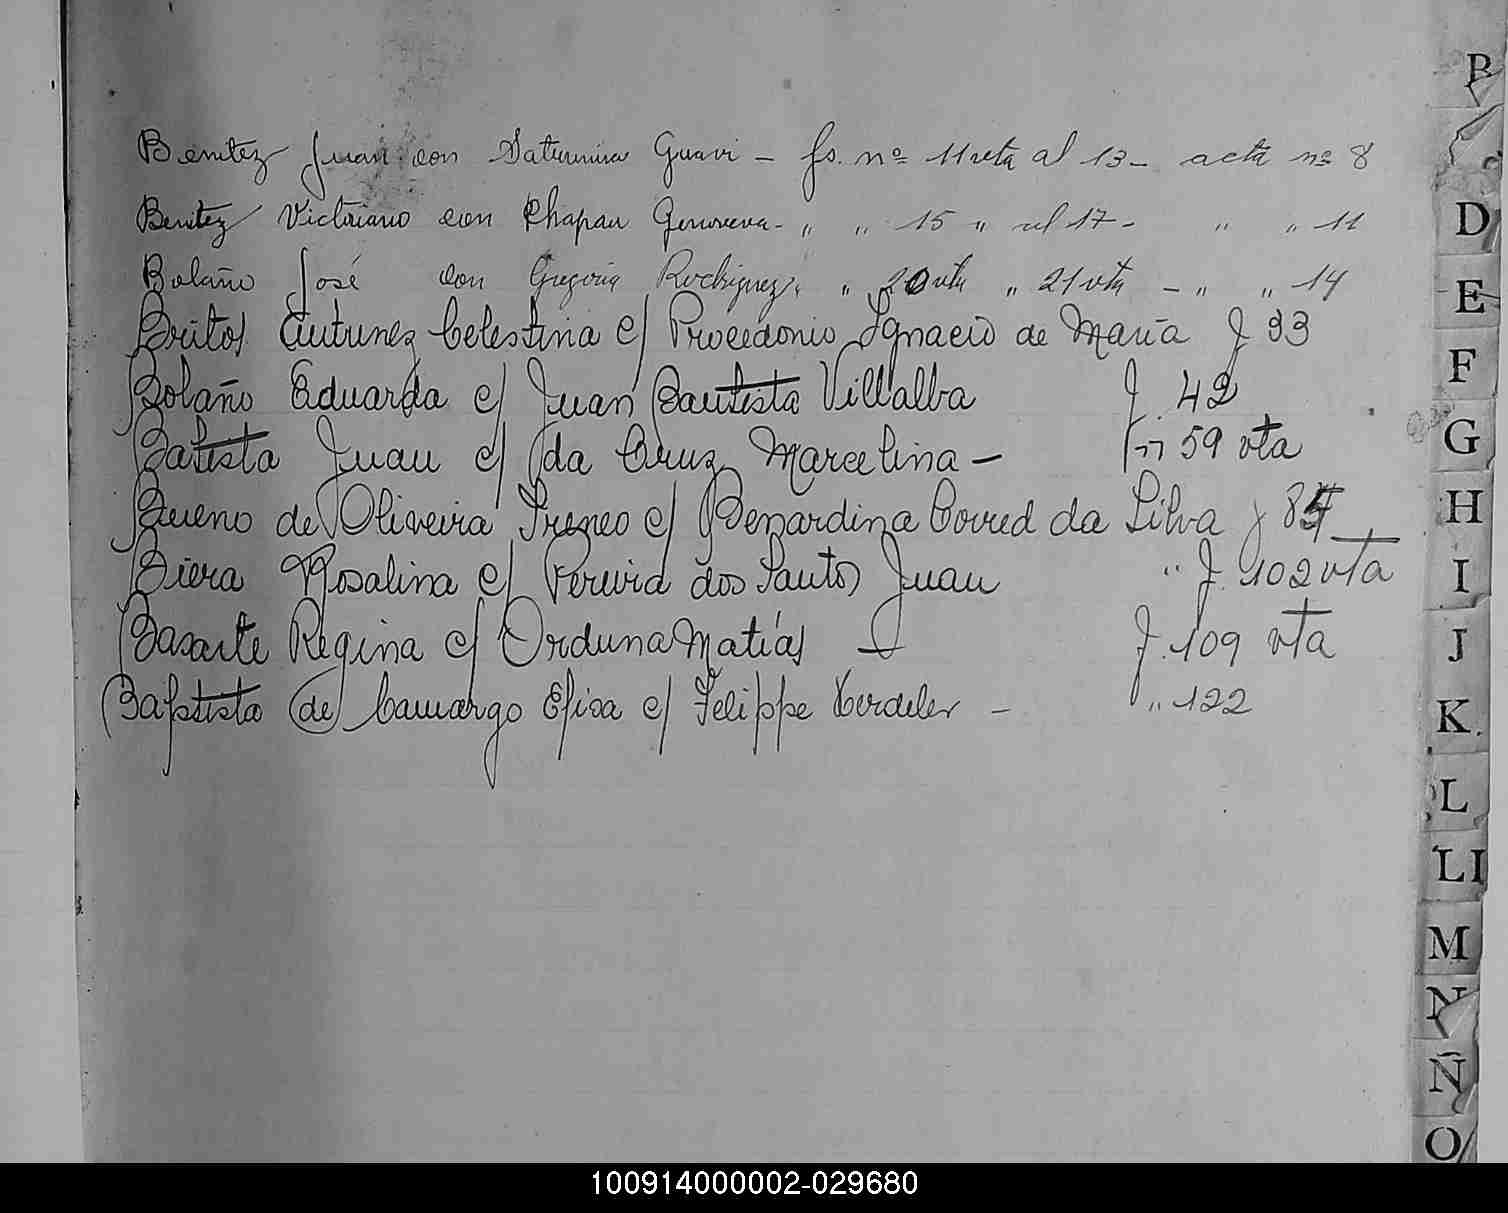 Benitez Juan con Saturnina Guavi - fs. nº 11 vta al 13 - acta nº 8
Benitez Victoriano con Chapau Genoveva - " " 15 " al 17 - " " 11
Bolaño José con Gregoria Rodriguez " " 20 vta " 21 vta - " " 14
Britos Antunez Celestina c/ Procedonio Ignacio de María J 33
Bolaño Eduarda c/ Juan Bautista Villalba J. 42
Batista Juan c/ da Cruz Marcelina - 59 vta
Bueno de Oliveira Ireneo c/ Benardina Corred da Silva J
Biera Rosalina c/ Pereira dos Santos Juan " J. 102 vta
Basarte Regina c/ Orduna Matías — J. 109 vta
Baptista (de) Camargo Efisa c/ Felippe - " 122
B
D
E
F
G
H
I
J
K
L
Ll
M
N
Ñ
O
100914000002-029680